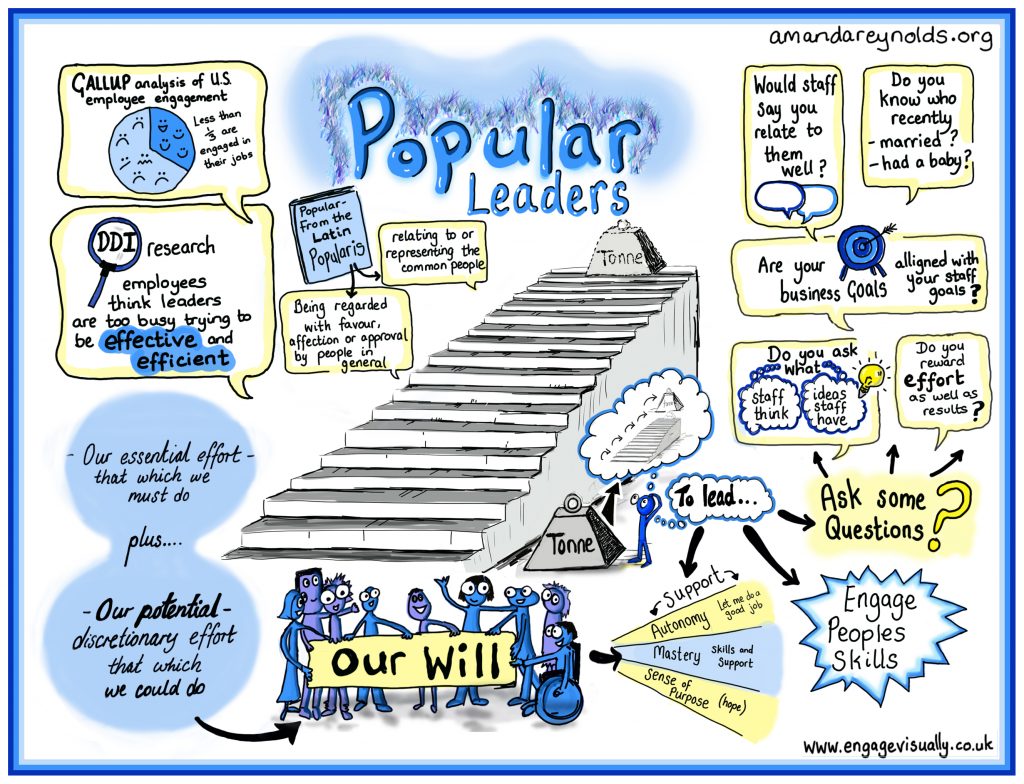 amandareynolds.org
GALLUP analysis of U.S.
employee engagement
Less than
1/3 are
engaged in
their jobs
DDI research
employees
think leaders
are too busy trying to
be effective and
efficient
Popular
Leaders
Popular-
From the
Latin
Popularis
relating to or
representing the
common people
Being regarded
with favour,
affection or approval
by people in
general
Tonne
Would staff
say you
relate to
them
well?
Do you
know who
recently
- married?
- had a baby?
Are your
business GOALS
alligned with
your staff
goals?
Do you ask
what
staff
think
ideas
staff
have
Do you
reward
effort
as well as
results?
- Our essential effort -
that which we
must do
plus....
- Our potential -
discretionary effort
that which
we could do
Tonne
To lead...
Ask some
Questions?
Our Will
Support
Autonomy
Let me do a
good job
Mastery
Skills and
Support
Sense of
Purpose (hope)
Engage
Peoples
Skills
www.engagevisually.co.uk